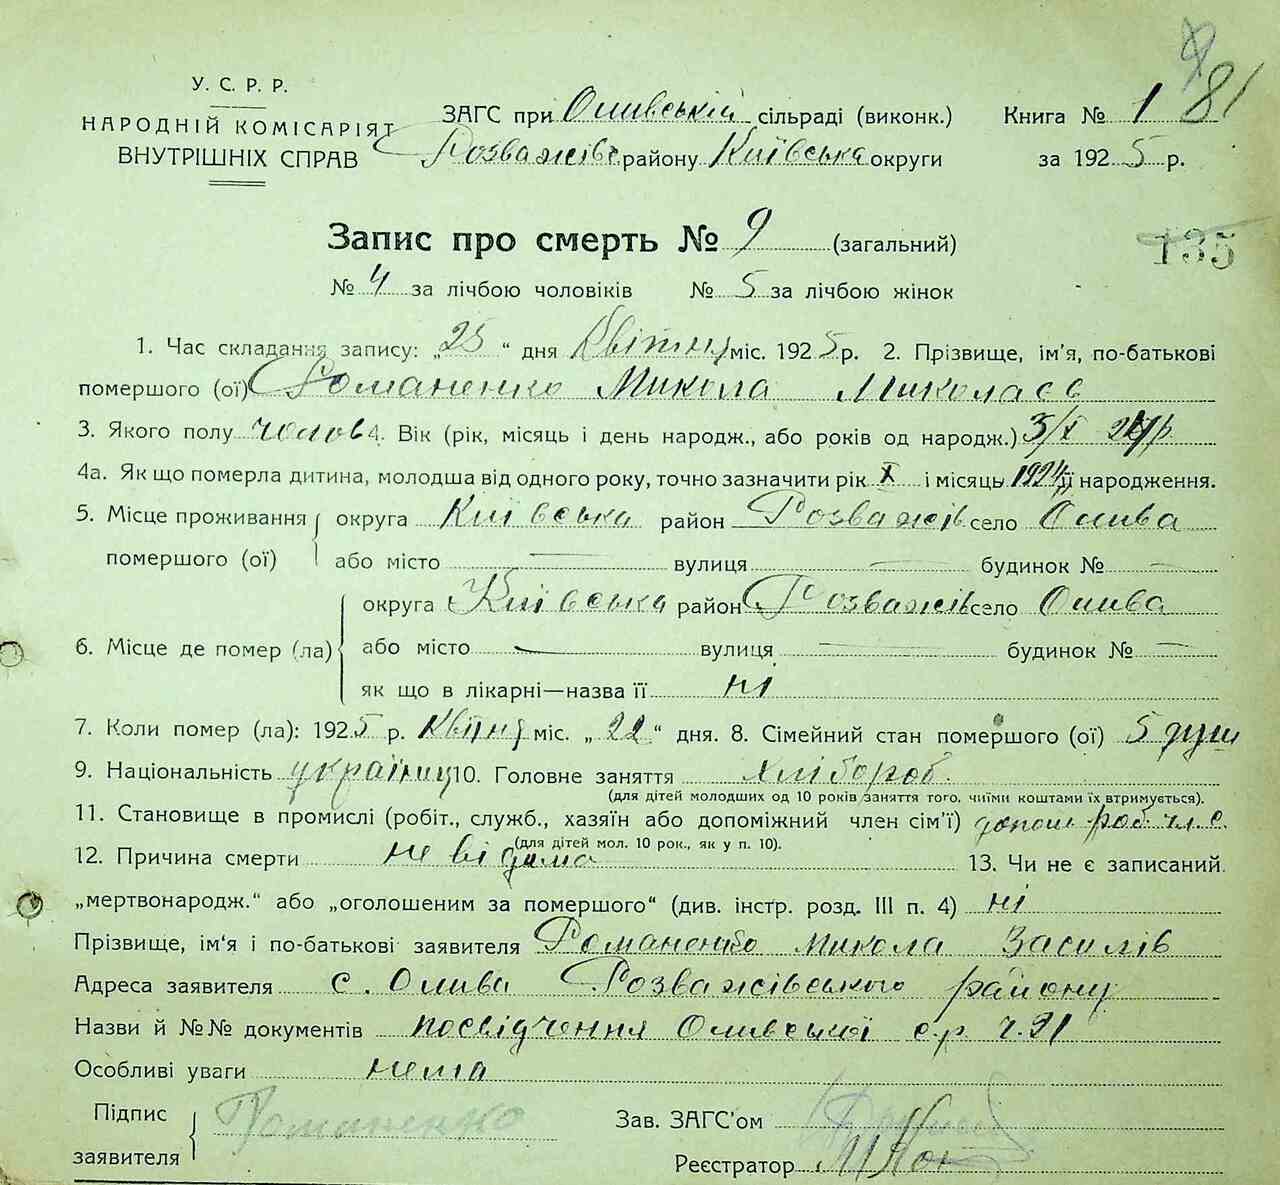 У. С. Р. Р.
НАРОДНІЙ КОМІСАРІЯТ
ВНУТРІШНІХ СПРАВ
ЗАГС при Оливській сільраді (виконк.)
Розважів району Київська округи
Книга № 1 81
за 1925 р.
Запис про смерть № 9 (загальний)
135
№ 4 за лічбою чоловіків № 5 за лічбою жінок
1. Час складання запису: „25" дня Квітня міс. 1925 р. 2. Прізвище, ім'я, по-батькові
помершого (ої) Романенко Микола Миколаєв
3. Якого полу чолов 4. Вік (рік, місяць і день народж., або років од народж.) 3/X 24р
4а. Як що померла дитина, молодша від одного року, точно зазначити рік X і місяць 1924 її народження.
5. Місце проживання помершого (ої) округа Київська район Розважів село Олива
або місто — вулиця — будинок № —
6. Місце де помер (ла) округа Київська район Розважів село Олива
або місто — вулиця — будинок № —
як що в лікарні—назва її ні
7. Коли помер (ла): 1925 р. Квітня міс. „22" дня. 8. Сімейний стан помершого (ої) 5 душ
9. Національність україниц 10. Головне заняття хлібороб.
(для дітей молодших од 10 років заняття того, чиїми коштами їх втримується).
11. Становище в промислі (робіт., служб., хазяїн або допоміжний член сім'ї) допом роб чл. с.
(для дітей мол. 10 рок., як у п. 10).
12. Причина смерти не відома 13. Чи не є записаний
„мертвонародж." або „оголошеним за помершого" (див. інстр. розд. III п. 4) ні
Прізвище, ім'я і по-батькові заявителя Романенко Микола Василів
Адреса заявителя с. Олива Розважівського району
Назви й №№ документів посвідчення Оливської с.р. ч. 91
Особливі уваги нема
Підпис заявителя Романенко
Зав. ЗАГС'ом
Реєстратор